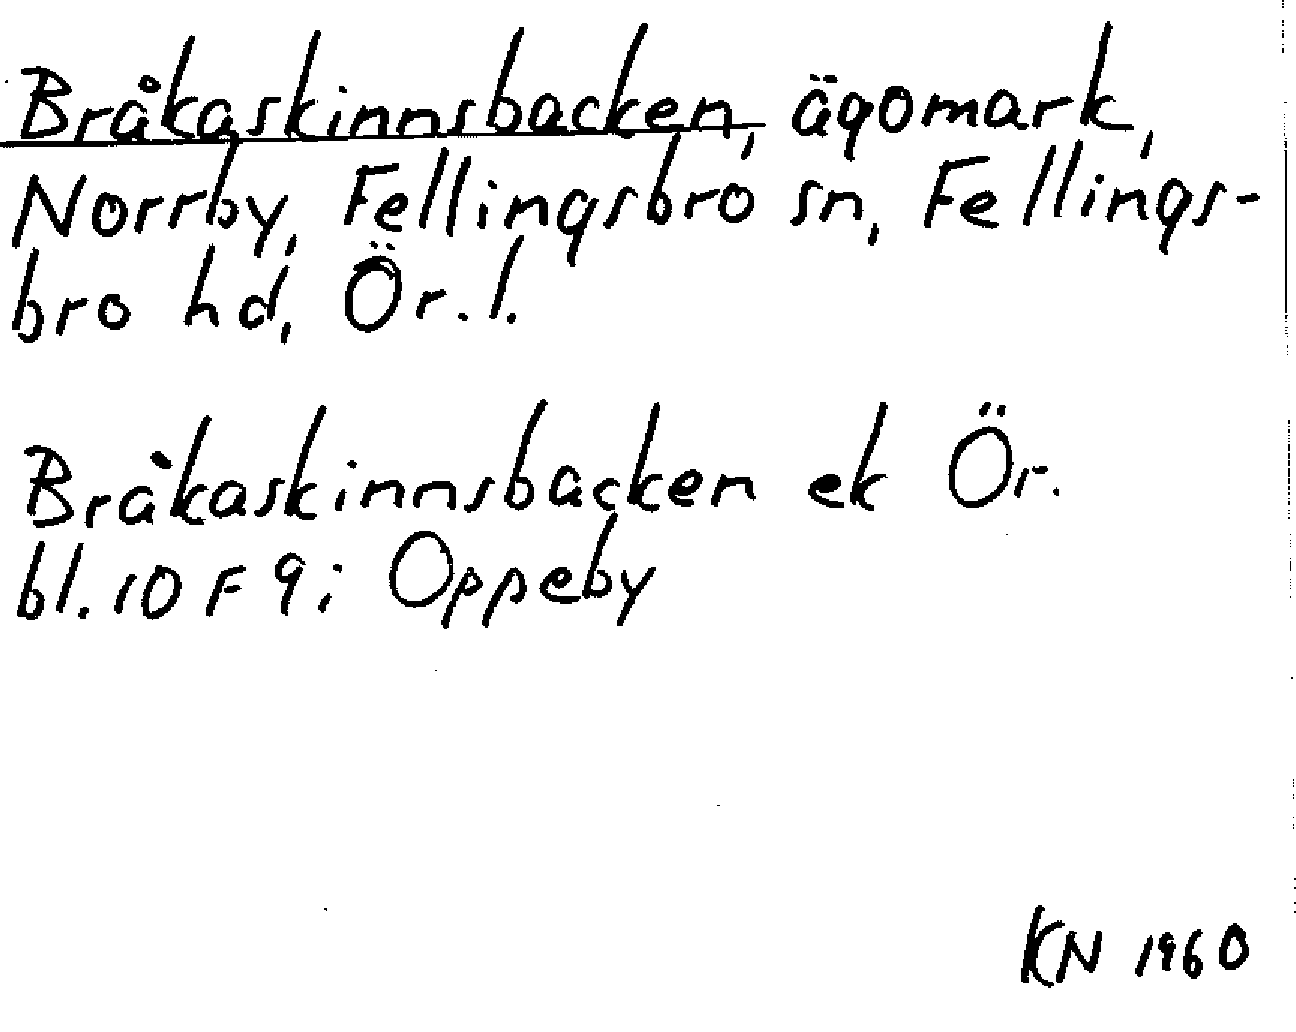 Bråkaskinnsbacken, ägomark,
Norrby, Fellingsbro sn, Fellings-
bro hd, Ör. l.
Bråkaskinnsbacken ek Ör.
bl. 10 F 9 i Oppeby
KN 1960